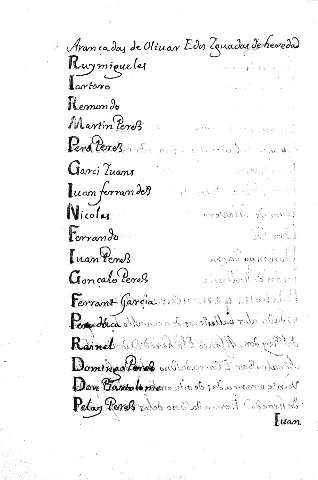 Arançadas de Oliuar E dos Yguadas de heredad
Ruy migueles
Remondo
Martin Pereß
Pero Pereß
Garci Iuans
Iuan ferrandeß
Nicolas
Ferrando
Iuan Pereß
Gonçalo Pereß
Ferrant Garçia
Rainel
Domingo Pereß
Don Bartolome
Pelay Pereß
Iuan